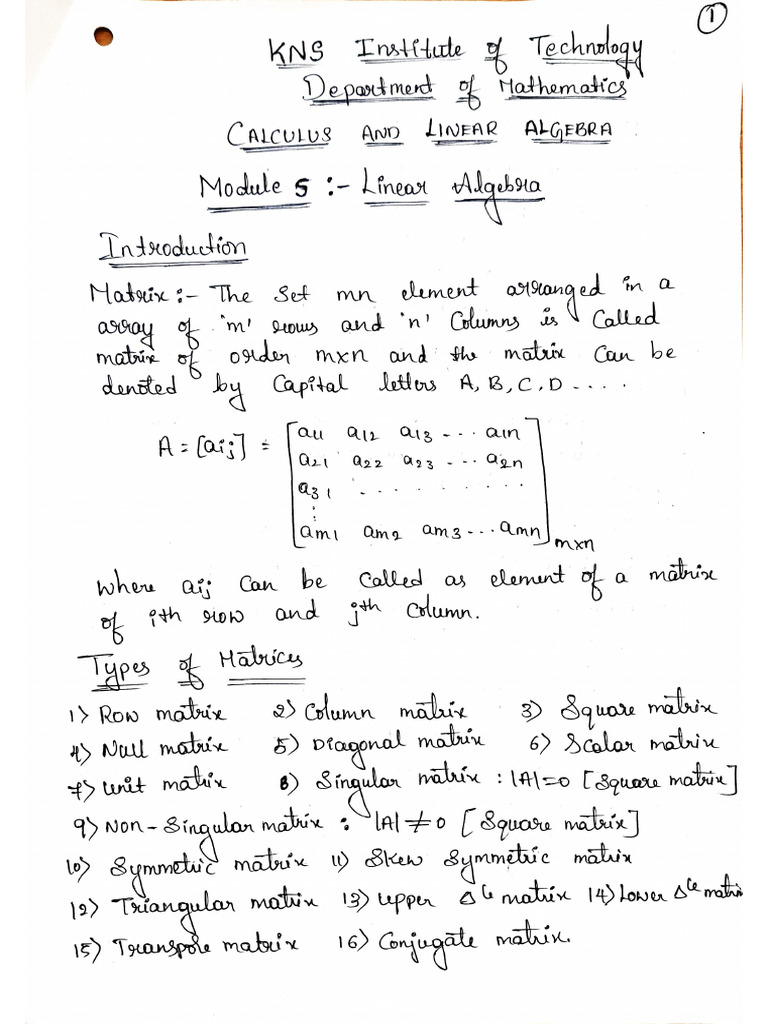 1
KNS Institute of Technology
Department of Mathematics
CALCULUS AND LINEAR ALGEBRA
Module 5 :- Linear Algebra
Introduction
Matrix :- The set mn element arranged in a
array of 'm' rows and 'n' Columns is Called
matrix of order mxn and the matrix Can be
denoted by Capital letters A, B, C, D ....
A = [aij] = [a11 a12 a13 ... a1n
a21 a22 a23 ... a2n
a31 . . . . . . . . .
⋮
am1 am2 am3 ... amn]mxn
Where aij Can be Called as element of a matrix
of ith row and jth Column.
Types of Matrices
1) Row matrix 2) Column matrix 3) Square matrix
4) Null matrix 5) Diagonal matrix 6) Scalar matrix
7) Unit matrix 8) Singular matrix : |A|=0 [Square matrix]
9) Non-Singular matrix : |A|≠0 [Square matrix]
10) Symmetric matrix 11) Skew Symmetric matrix
12) Triangular matrix 13) Upper Δle matrix 14) Lower Δle matrix
15) Transpose matrix 16) Conjugate matrix.